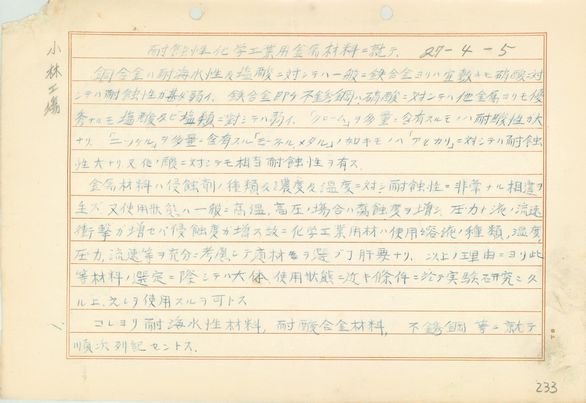 小林工場
耐蝕性化学工業用金属材料ニ就テ 27-4-5
銅合金ハ耐海水性及塩酸ニ対シテハ一般ニ鉄合金ヨリハ宜敷キモ硝酸ニ対
シテハ耐蝕性ガ甚ダ弱イ、鉄合金即チ不銹鋼ハ硝酸ニ対シテハ他金属ヨリモ優
秀ナルモ塩酸及ビ塩類ニ対シテハ弱イ、「クローム」ヲ多量ニ含有スルモノハ耐酸性ガ大
ナリ、「ニッケル」ヲ多量ニ含有スル「モーネルメタル」ノ如キモノハ「アルカリ」ニ対シテハ耐蝕
性大ナリ又他ノ酸ニ対シテモ相当耐蝕性ヲ有ス.
金属材料ハ侵蝕剤ノ種類及濃度及温度ニ対シ耐蝕性ニ非常ナル相違ヲ
生ズ 又使用状態ハ一般ニ高温,高圧ノ場合ハ腐蝕度ヲ増シ、圧力ヤ液ノ流速
衝撃力増セバ侵蝕度ガ増ス故ニ化学工業用材ハ使用スル溶液ノ種類,温度,
圧力,流速等ヲ充分ニ考慮シテ適材ヲ選ブ丁肝要ナリ、以上ノ理由ニヨリ此
等材料ノ選定ニ際シテハ大体、使用状態ニ近キ条件ニ於テ実験研究シタ
ル上、之レヲ使用スルヲ可トス
コレヨリ耐海水性材料,耐酸合金材料, 不銹鋼 等ニ就テ
順次列記セントス.
233